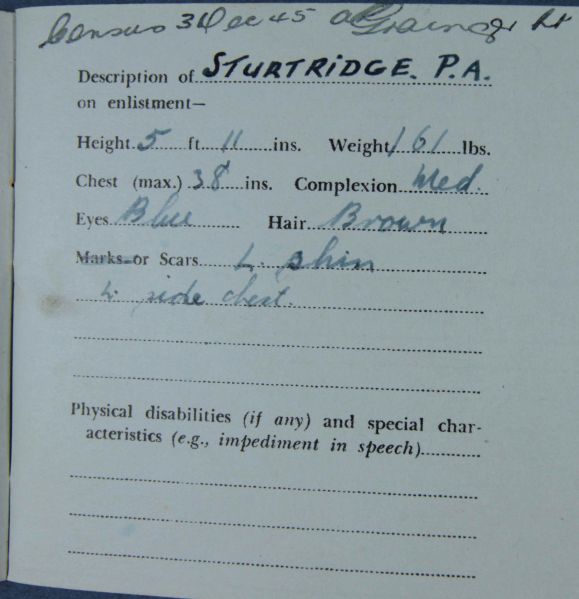 Census 31 Dec 45 Grainger Lt
Description of STURTRIDGE. P.A.
on enlistment—
Height 5 ft 11 ins. Weight 161 lbs.
Chest (max.) 38 ins. Complexion Med.
Eyes Blue Hair Brown
Marks or Scars L. shin
L. side chest.
Physical disabilities (if any) and special char-
acteristics (e.g., impediment in speech)